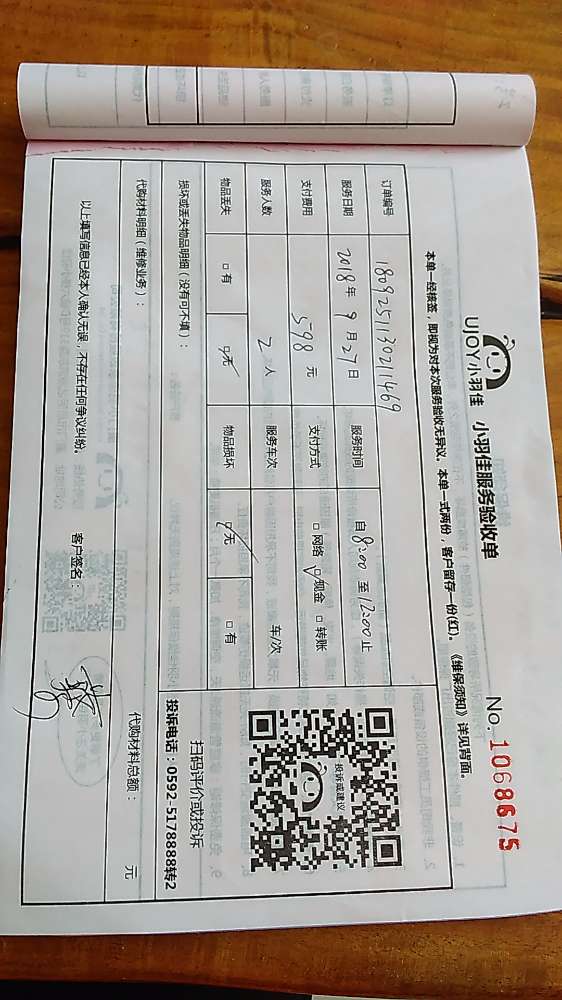 UJOY小羽佳 小羽佳服务验收单
No. 1068675
本单一经核签，即视为对本次服务验收无异议。本单一式两份，客户留存一份(红)。《维保须知》详见背面。
订单编号 1809251130211469
服务日期 2018年9月27日 服务时间 自8:00至12:00止
支付费用 598元 支付方式 □网络 ☑现金 □转账
服务人数 2人 服务车次 车/次
物品丢失 □有 ☑无 物品损坏 ☑无 □有
投诉或建议
扫码评价或投诉
投诉电话：0592-5178888转2
损坏或丢失物品明细（没有可不填）：
代购材料明细（维修业务）：
代购材料总额： 元
以上填写信息已经本人确认无误，不存在任何争议纠纷。 客户签名：